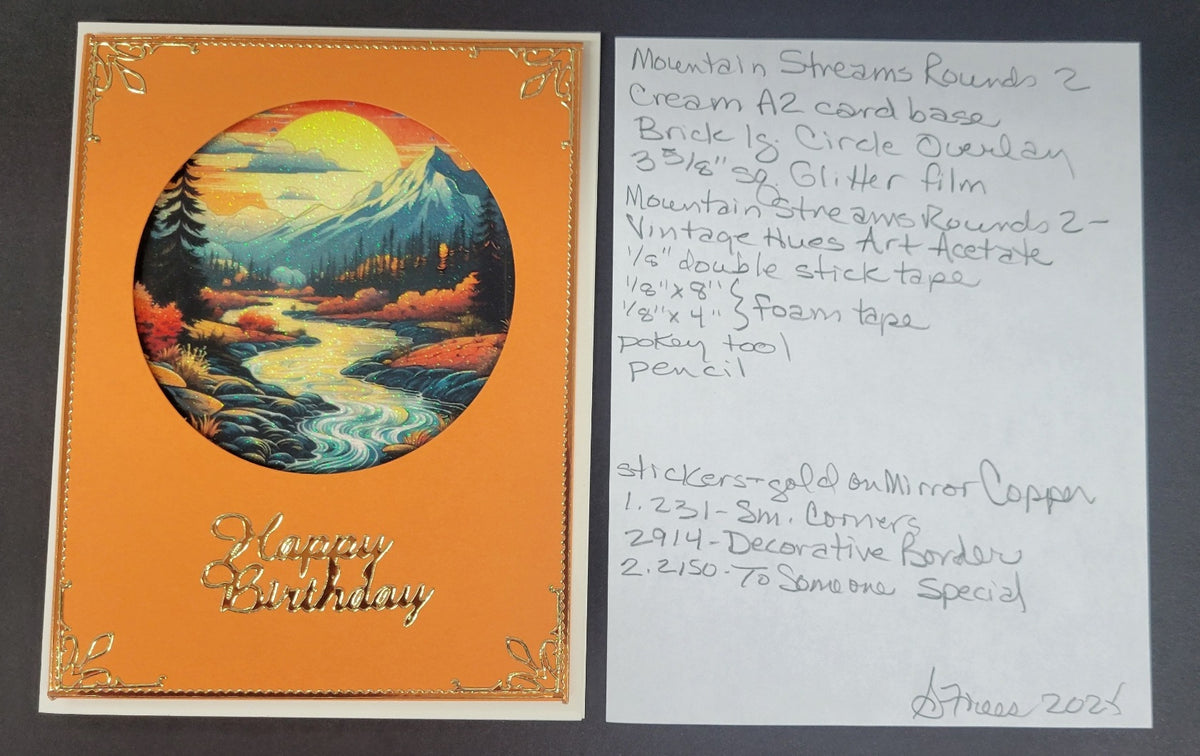 Happy
Birthday
Mountain Streams Rounds 2
Cream A2 card base
Brick lg. Circle Overlay
3 5/8" sq. Glitter film
Mountain Streams Rounds 2-
Vintage Hues Art Acetate
1/8" double stick tape
1/8" x 8" }
1/8" x 4" } foam tape
pokey tool
pencil
stickers-gold on Mirror Copper
1.231-Sm. Corners
2914-Decorative Border
2.2150-To Someone Special